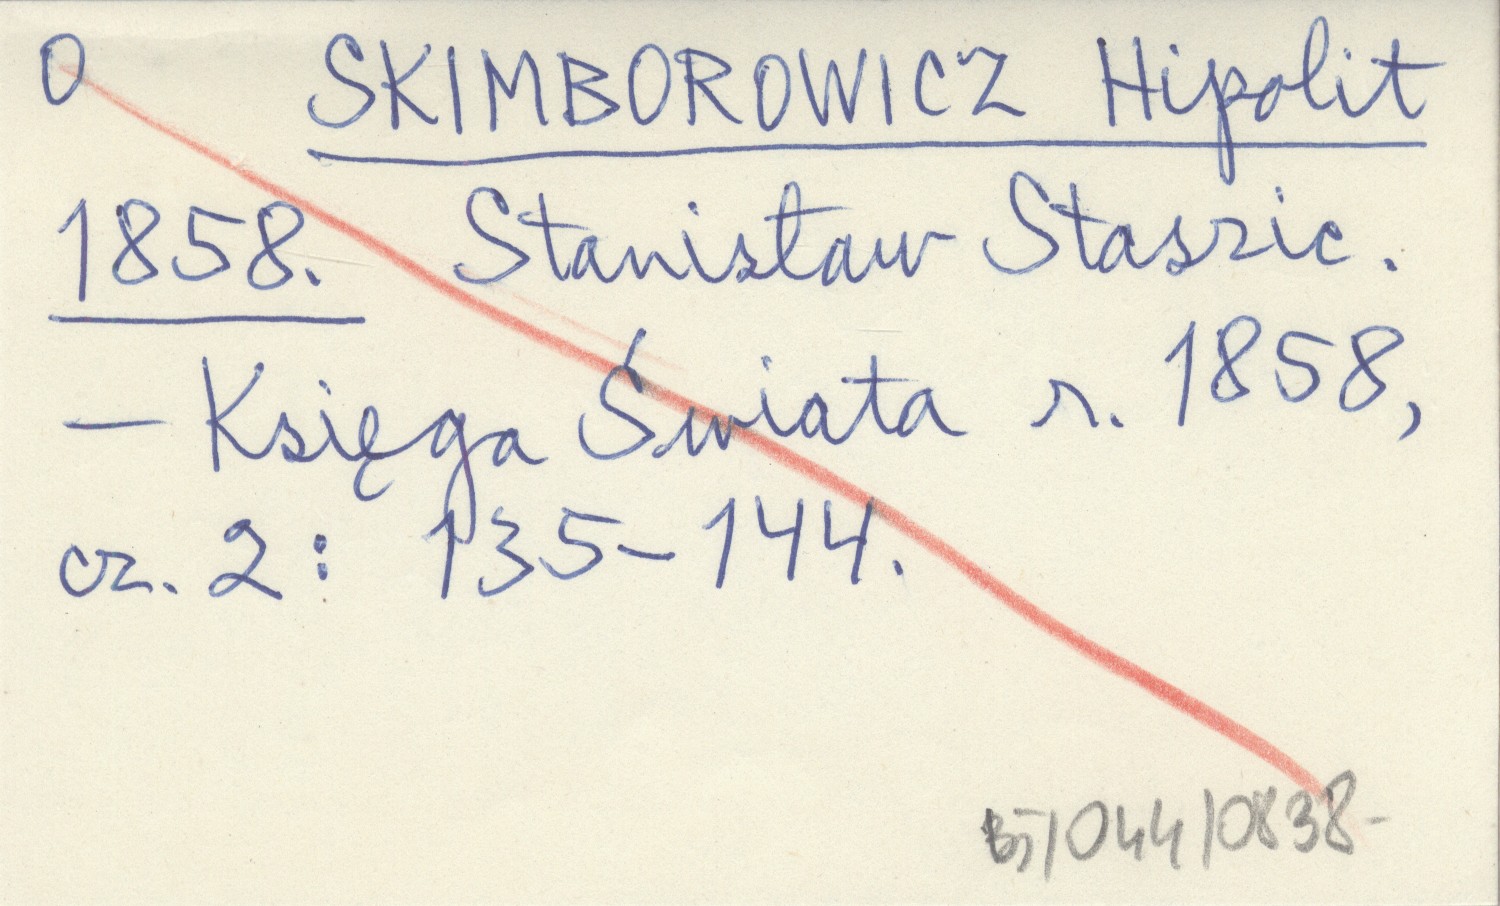 0 SKIMBOROWICZ Hipolit
1858. Stanisław Staszic.
— Księga Świata r. 1858,
cz. 2: 135–144.
BJ/044/0838-